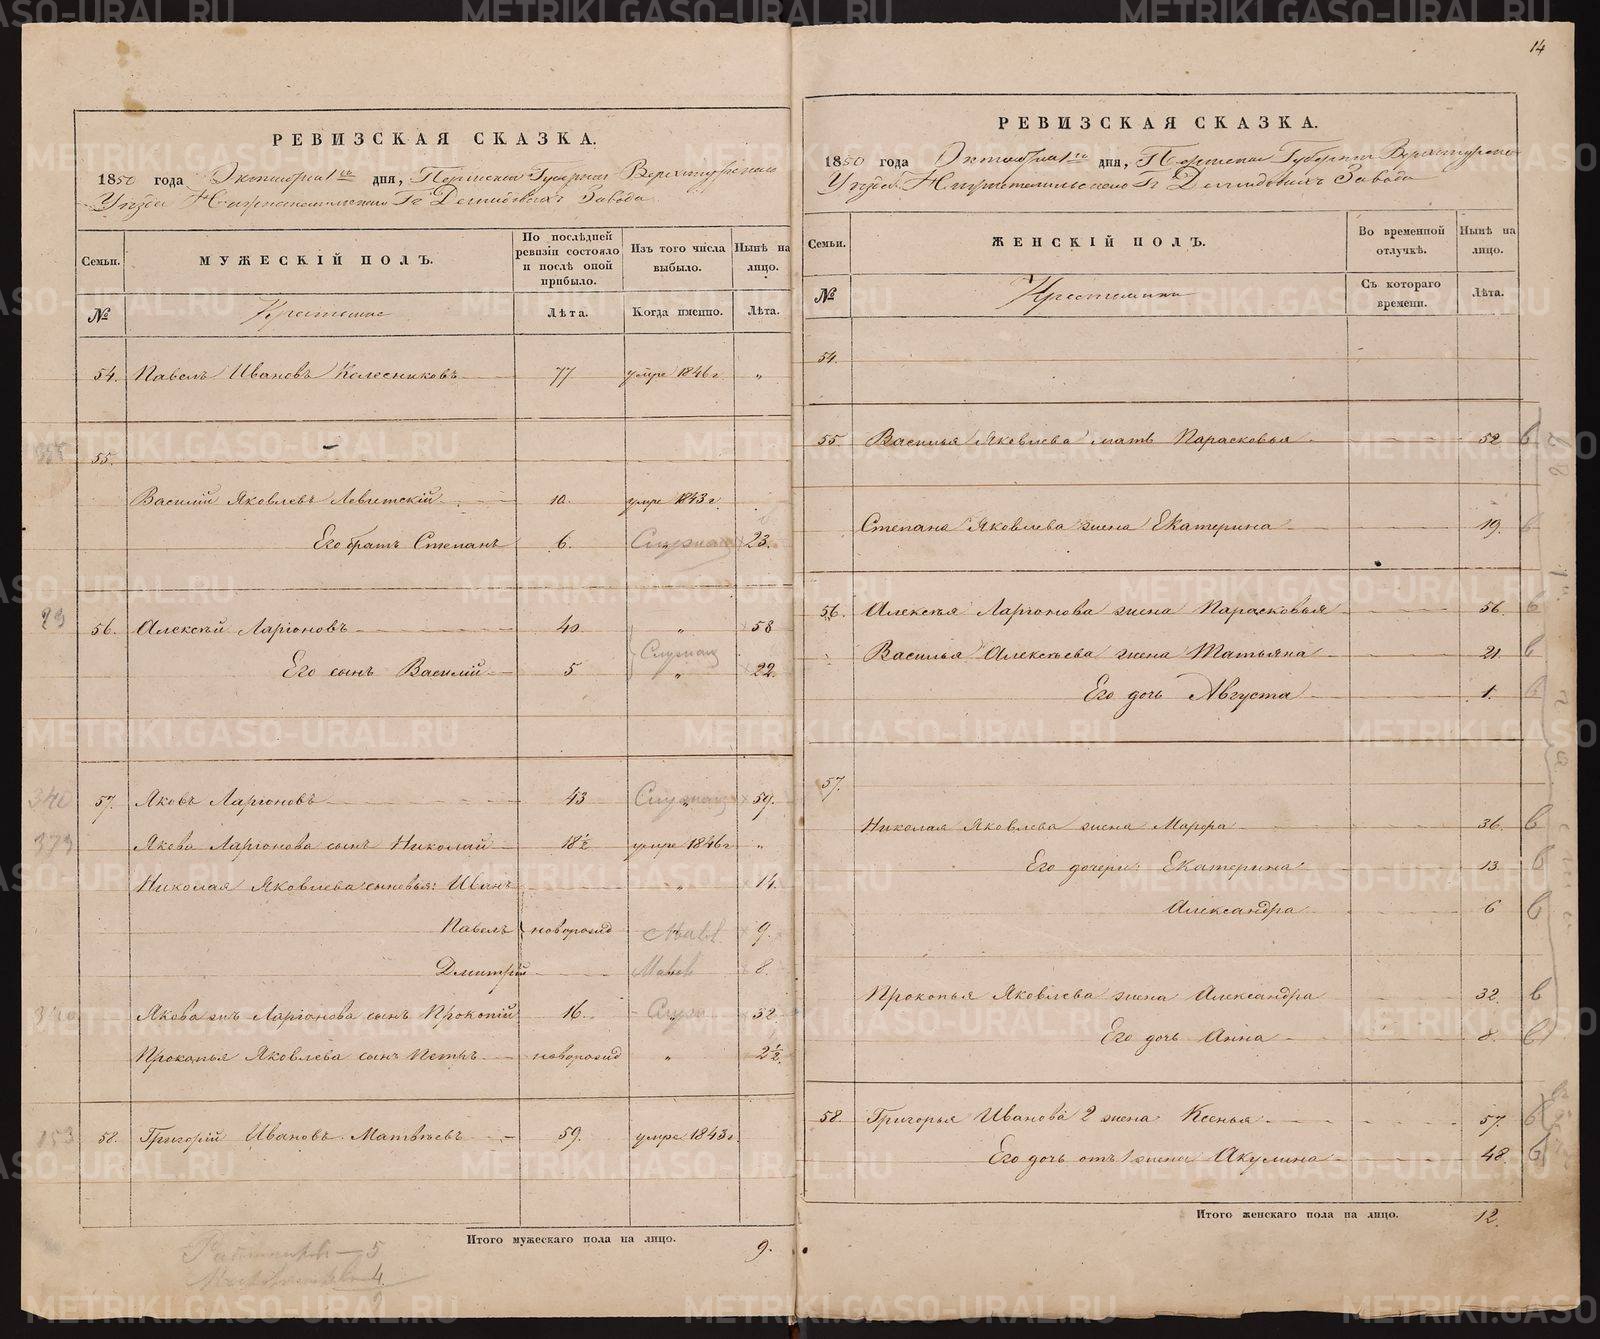 14
РЕВИЗСКАЯ СКАЗКА.
1850 года Октября 1го дня, Пермской Губернии Верхотурскаго
Уезда Нижнетагильскаго Гг Демидовыхъ Завода
Семьи.
МУЖЕСКІЙ ПОЛЪ.
По послѣдней ревизіи состояло и послѣ оной прибыло.
Изъ того числа выбыло.
Нынѣ на лицо.
№
Крестьяне
Лѣта.
Когда именно.
Лѣта.
54. Павелъ Ивановъ Колесниковъ 77 умре 1846 г "
55.
Василій Яковлевъ Левитскій 10. умре 1843 г.
Его братъ Степанъ 6. 23.
29
56. Алексѣй Ларіоновъ 40 " 58
Его сынъ Василій 5 " 22.
340
57. Яковъ Ларіоновъ 43 " 59.
373
Якова Ларіонова сынъ Николай 18½ умре 1846 г "
Николая Яковлева сыновья: Иванъ " 14.
Павелъ новорожд 9.
Дмитрій 8.
340
Якова жъ Ларіонова сынъ Прокопій 16. 32
Прокопья Яковлева сынъ Петръ новорожд " 2½.
153
58. Григорій Ивановъ Матвѣевъ 59. умре 1843 г.
Итого мужескаго пола на лицо. 9.
5
4
9
РЕВИЗСКАЯ СКАЗКА.
1850 года Октября 1го дня, Пермской Губерніи Верхотурскаго
Уезда Нижнетагильскаго Гг Демидовыхъ Завода
Семьи.
ЖЕНСКІЙ ПОЛЪ.
Во временной отлучкѣ.
Нынѣ на лицо.
№
Крестьянки
Съ котораго времени.
Лѣта.
54.
55. Василья Яковлева мать Парасковья 52
Степана Яковлева жена Екатерина 19.
56. Алексѣя Ларіонова жена Парасковья 56.
Василья Алексѣева жена Татьяна 21.
Его дочь Августа 1.
57.
Николая Яковлева жена Марфа 36.
Его дочери: Екатерина 13.
Александра 6
Прокопья Яковлева жена Александра 32.
Его дочь Анна 8.
58. Григорья Иванова 2 жена Ксенья 57.
Его дочь отъ 1 жены Акулина 48.
Итого женскаго пола на лицо. 12.
METRIKI.GASO-URAL.RU